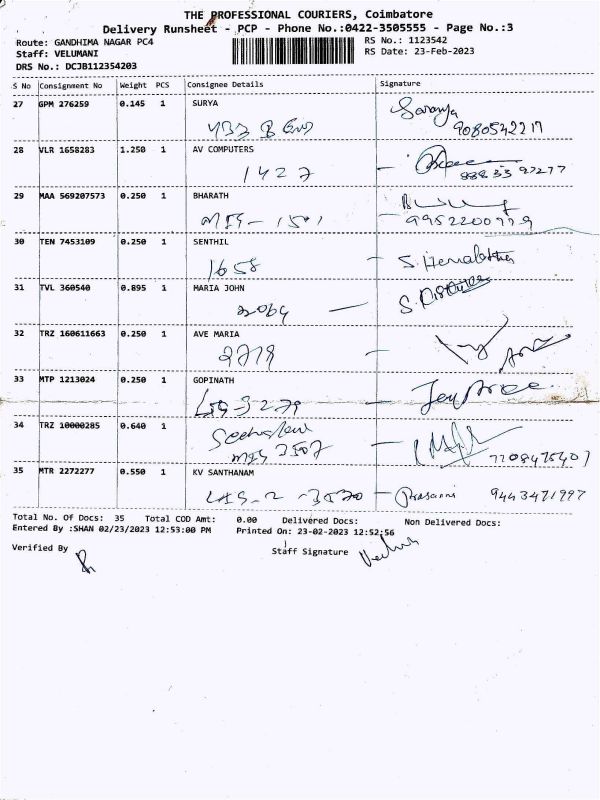 THE PROFESSIONAL COURIERS, Coimbatore
Delivery Runsheet - PCP - Phone No.:0422-3505555 - Page No.:3
Route: GANDHIMA NAGAR PC4
RS No.: 1123542
Staff: VELUMANI
RS Date: 23-Feb-2023
DRS No.: DCJB112354203
S No Consignment No Weight PCS Consignee Details Signature
27 GPM 276259 0.145 1 SURYA
Saranya
9080542217
28 VLR 1658283 1.250 1 AV COMPUTERS
1427
29 MAA 569207573 0.250 1 BHARATH
30 TEN 7453109 0.250 1 SENTHIL
1658 S. Hemalatha
31 TVL 360540 0.895 1 MARIA JOHN
2064
32 TRZ 160611663 0.250 1 AVE MARIA
2719
33 MTP 1213024 0.250 1 GOPINATH
34 TRZ 10000285 0.640 1
MIG 3507
7708475407
35 MTR 2272277 0.550 1 KV SANTHANAM
9443471997
Total No. Of Docs: 35 Total COD Amt: 0.00 Delivered Docs: Non Delivered Docs:
Entered By :SHAN 02/23/2023 12:53:00 PM Printed On: 23-02-2023 12:52:56
Verified By
Staff Signature